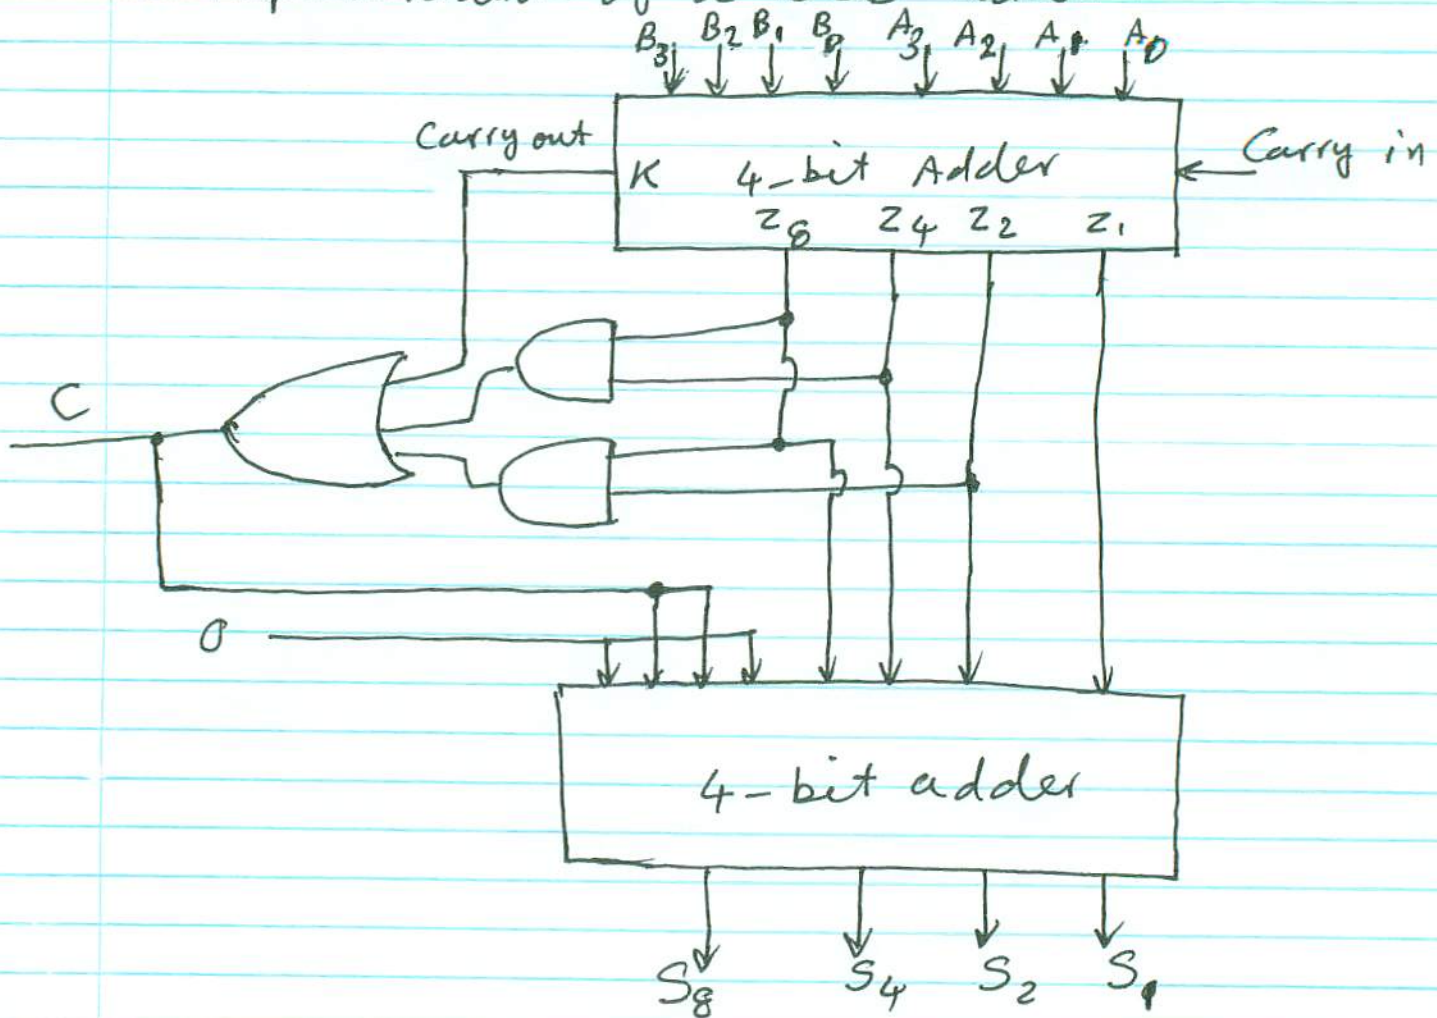 B3 B2 B1 B0 A3 A2 A1 A0
Carry out
K 4-bit Adder
Carry in
Z8 Z4 Z2 Z1
C
0
4-bit adder
S8 S4 S2 S1